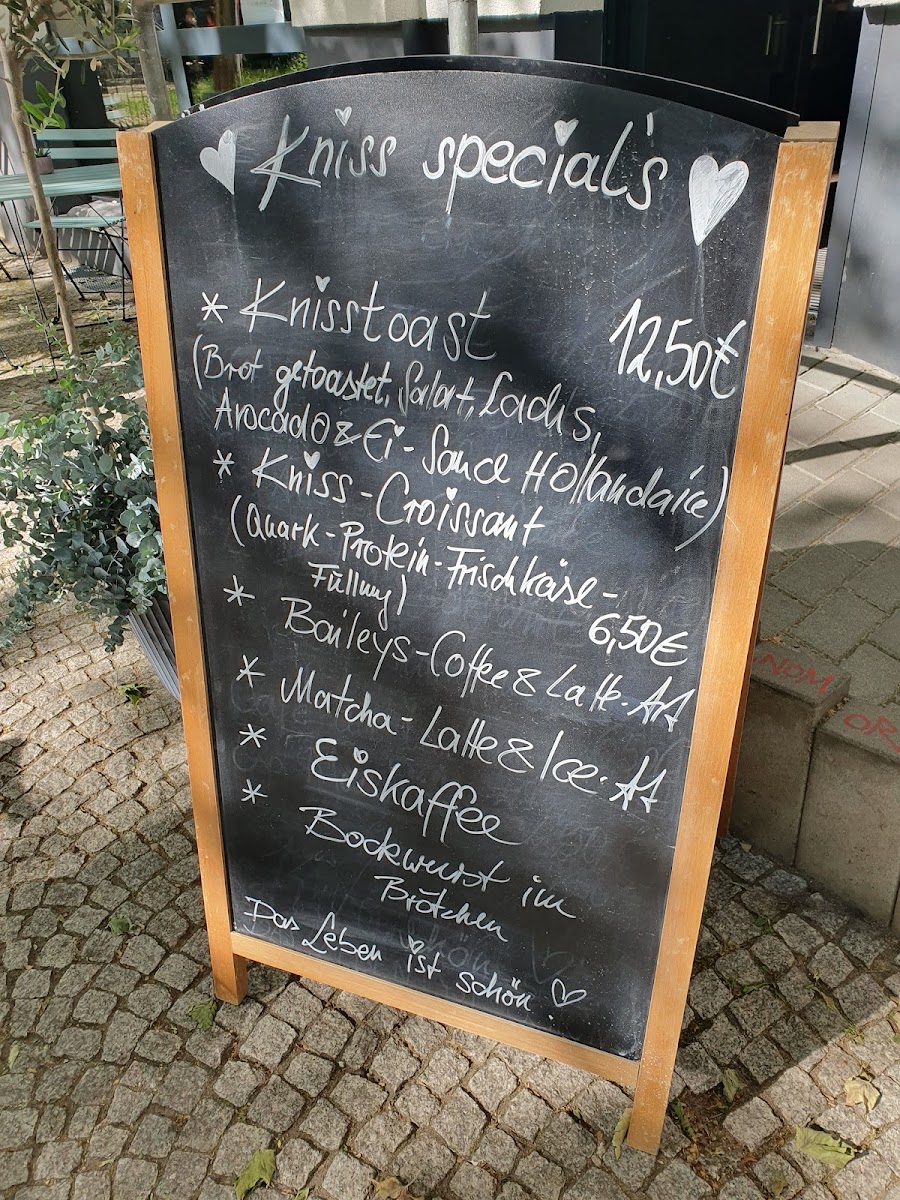 Kniss special's
* Knisstoast 12,50€
(Brot getoastet, Salat, Lachs,
Avocado & Ei - Sauce Hollandaise)
* Kniss-Croissant
(Quark-Protein-Frischkäse-
Füllung) 6,50€
* Baileys-Coffee & Latte-Art
* Matcha-Latte & Ice-Art
* Eiskaffee
* Bockwurst im
Brötchen
Das Leben ist schön!